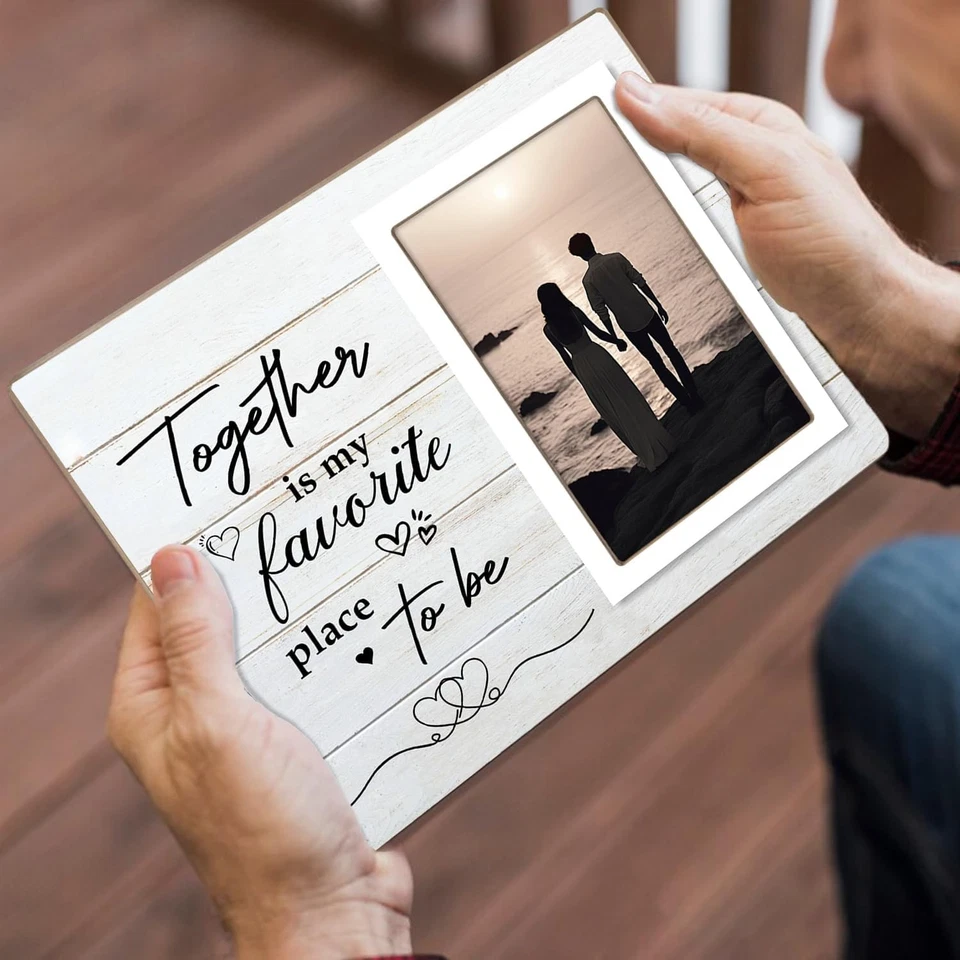 Together
is my
favorite
place to be